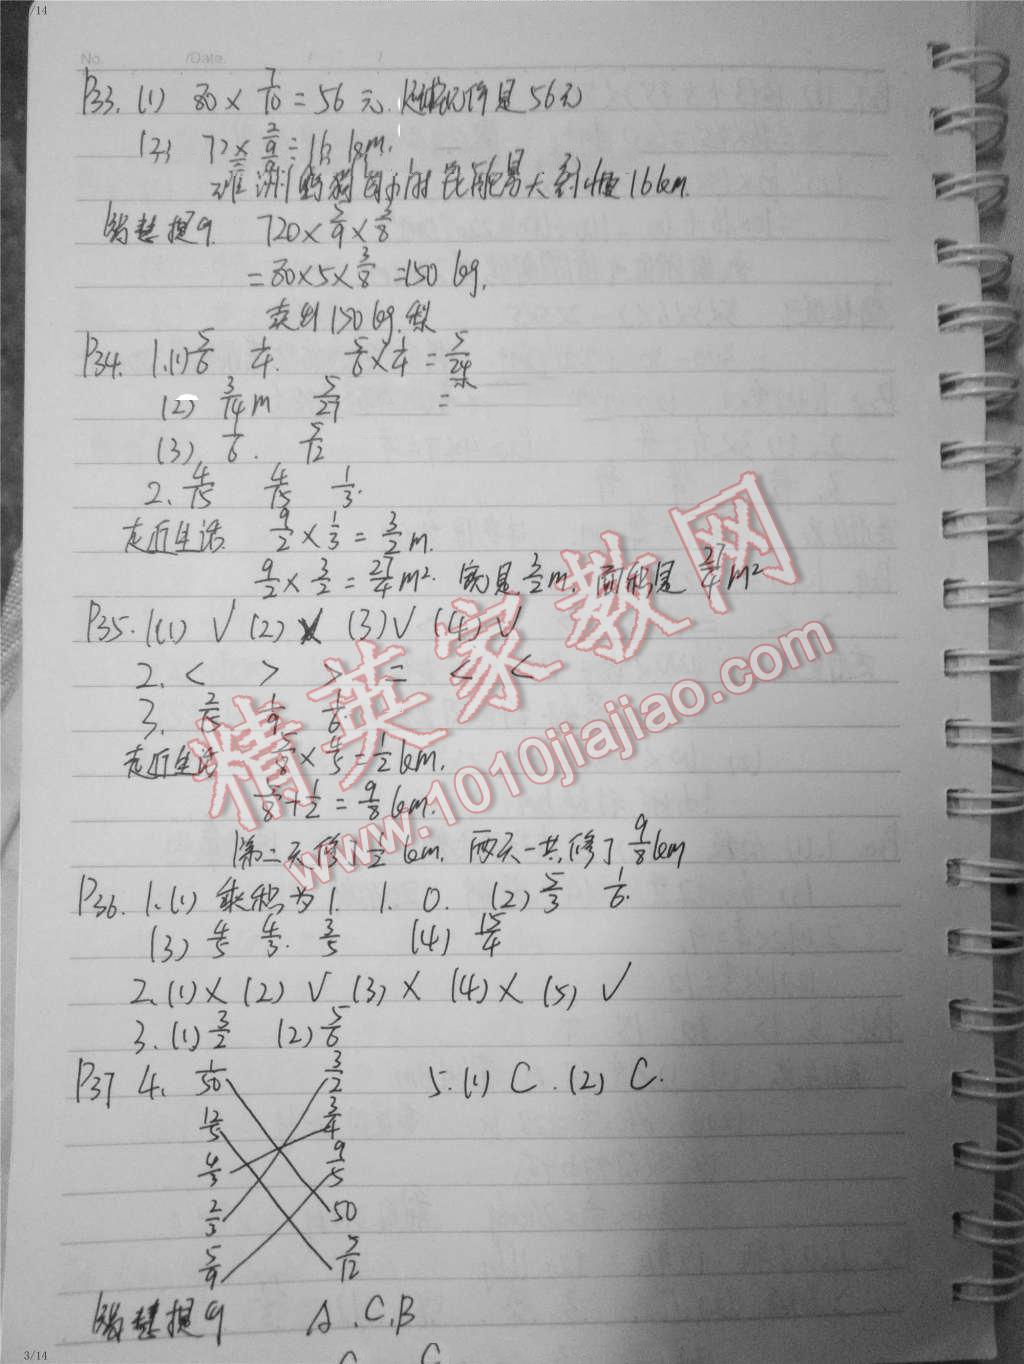 /14
No. /Date.
P33. (1) 80 × 7/10 = 56 元. 现价是 56元
(2) 72 × 2/9 = 16 km.
16 km.
智慧提 720 × 5/9 × 3/8
= 80 × 5 × 3/8 = 150 kg.
卖出 150 kg. 梨
P34. 1.(1) 5/6 1/4. 5/6 × 1/4 = 5/24
(2) 3/14 m 5/27 =
(3) 1/6. 5/12
2. 4/15 4/15 1/3.
走近生活 9/2 × 1/3 = 3/2 m.
9/2 × 3/2 = 27/4 m². 宽是 3/2 m, 面积是 27/4 m²
P35. 1(1) √ (2) × (3) √ (4) √
2. < > > = < <
3. 2/15 1/9 1/6.
走近生活 5/8 × 4/5 = 1/2 km.
5/8 + 1/2 = 9/8 km.
第二天修了 1/2 km. 两天一共修了 9/8 km
P36. 1.(1) 乘积为 1. 1. 0. (2) 5/3 1/6.
(3) 4/5 4/3. 3/5 (4) 15/4
2.(1) × (2) √ (3) × (4) × (5) √
3.(1) 3/2 (2) 5/6
P37 4. 1/50 3/2 5.(1) C. (2) C.
12/5 3/4
4/3 9/5
2/3 50
5/9 5/12
智慧提 A. C. B
C C
精英家教网
www.1010jiajiao.com
3/14